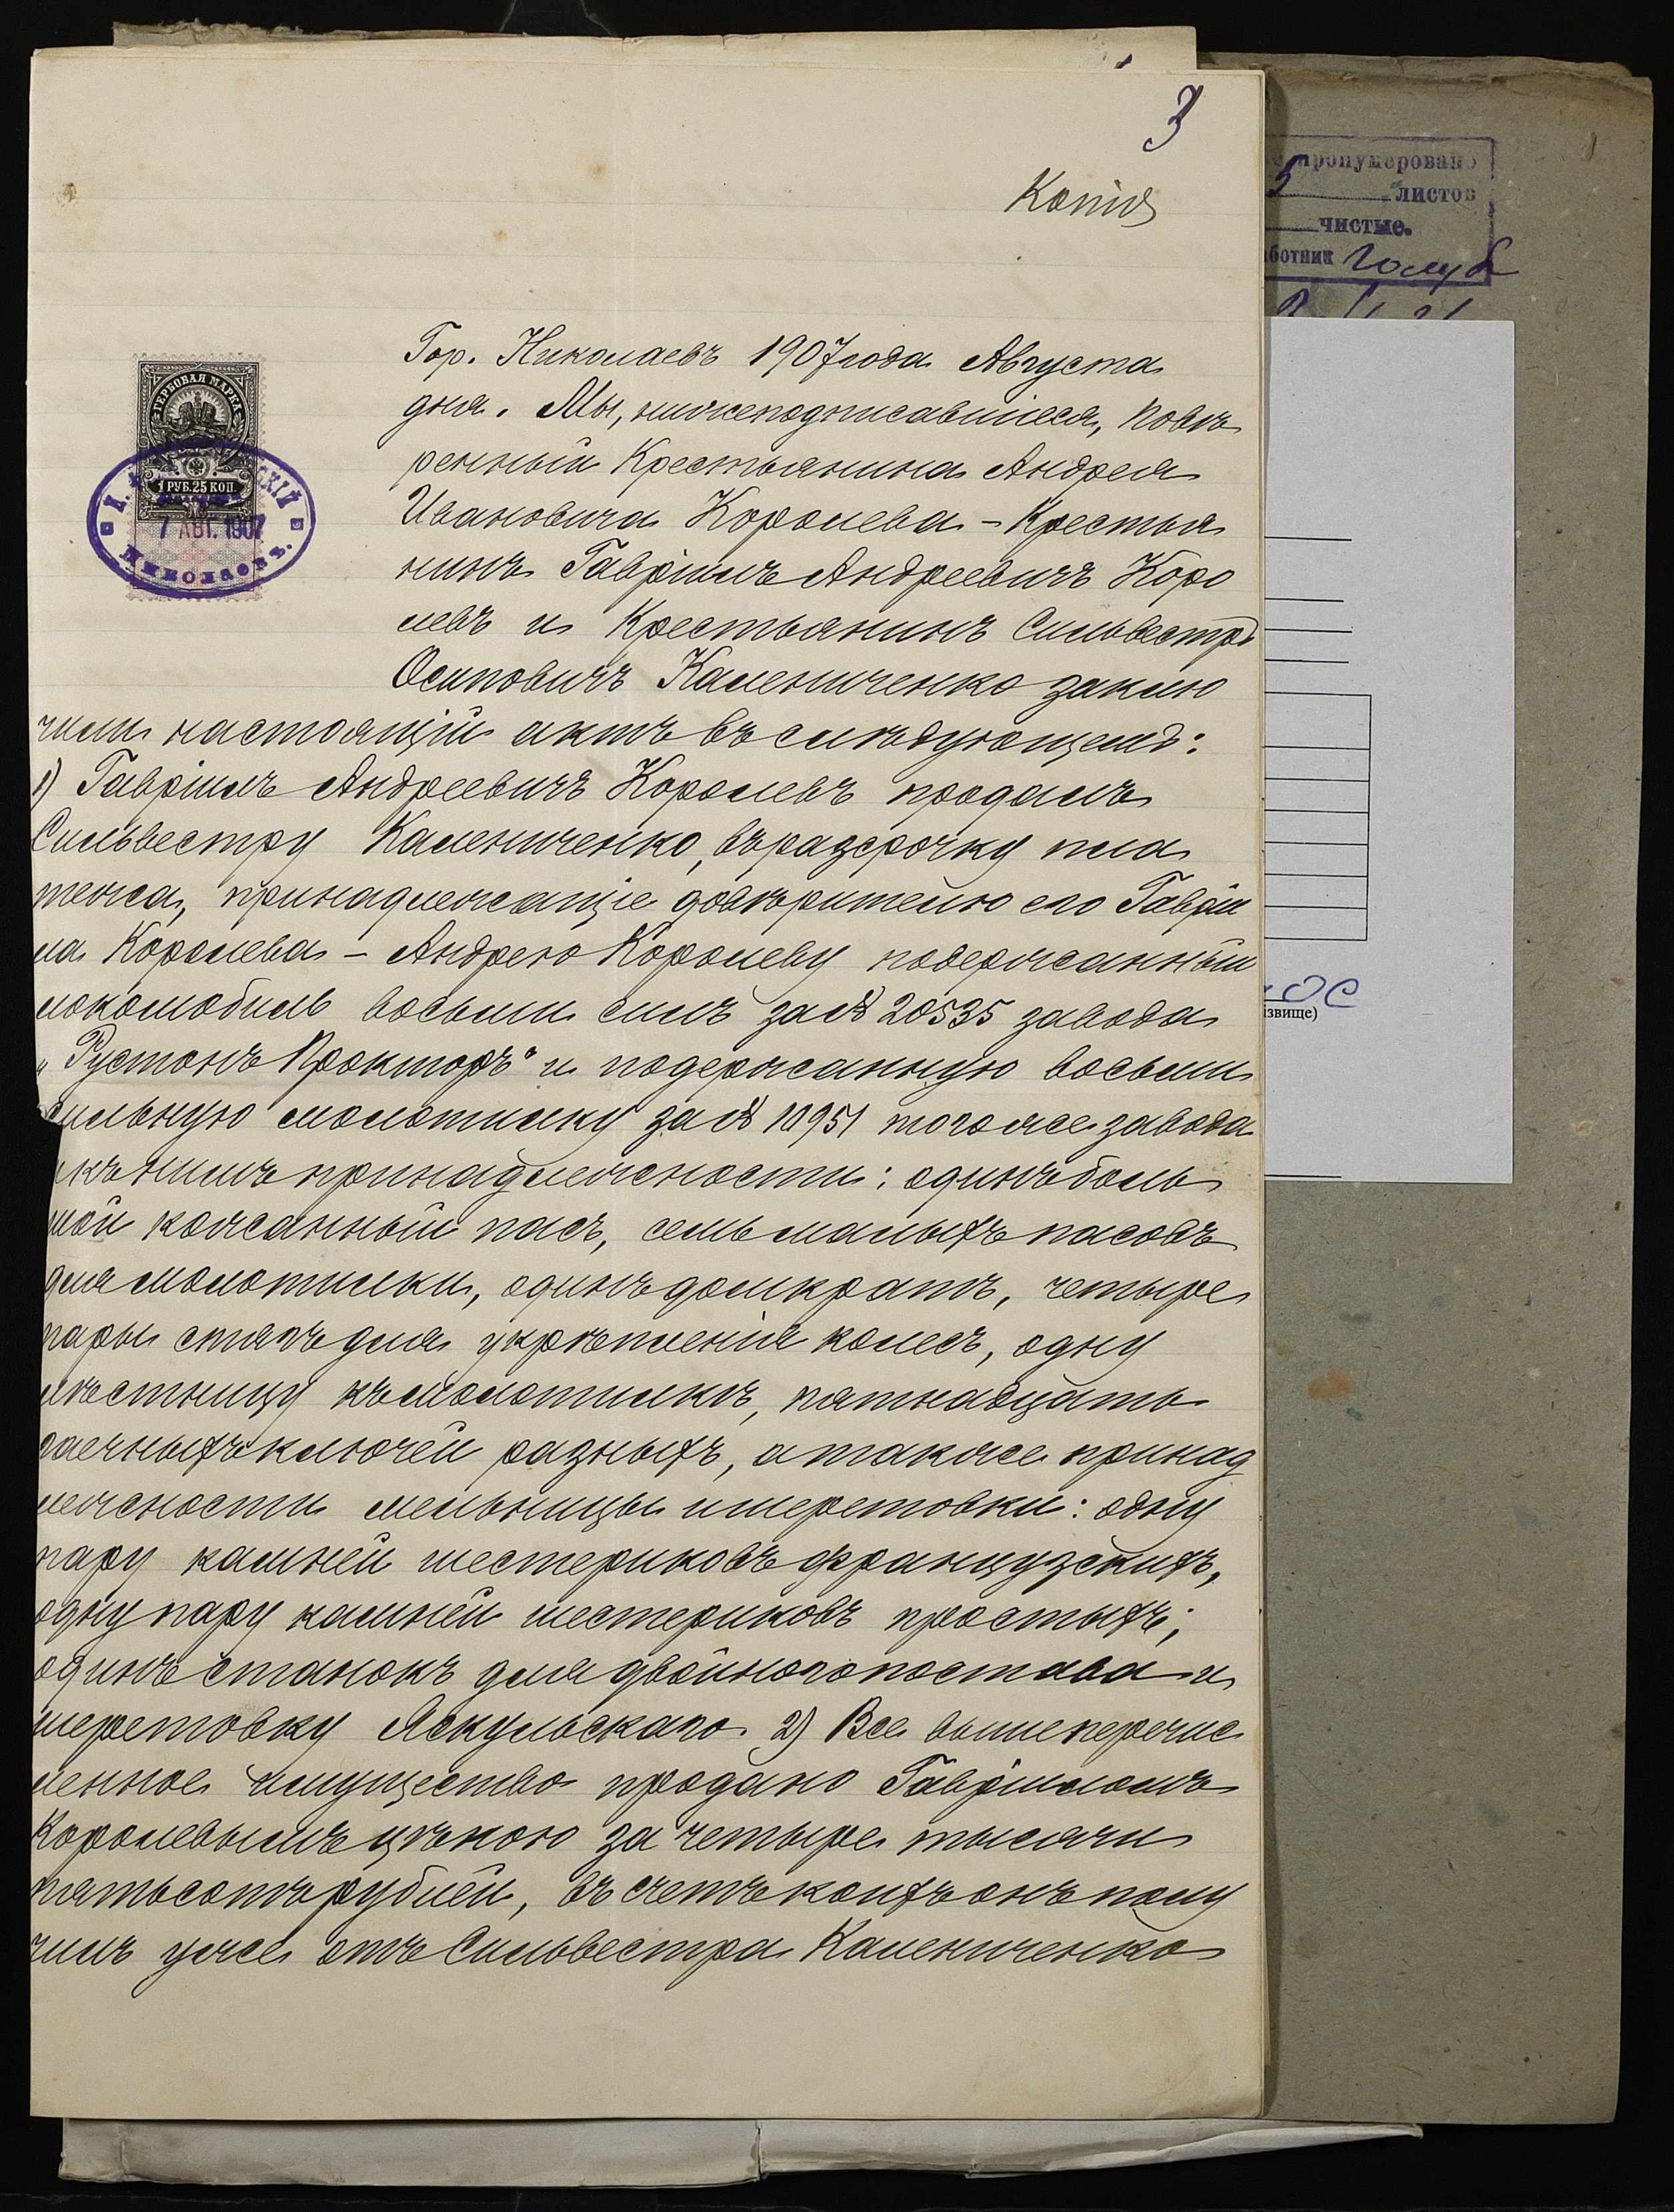 3
Копія
пронумеровано
5 листов
чистые.
Гор. Николаевъ 1907 года Августа
дня. Мы, нижеподписавшіеся, повѣ
ренный Крестьянина Андрея
Ивановича Королева - Крестья
нинъ Гавріилъ Андреевичъ Коро
левъ и Крестьянинъ Сильвестръ
Осиповичъ Калениченко заклю
чили настоящій актъ въ слѣдующемъ:
1) Гавріилъ Андреевичъ Королевъ продалъ
Сильвестру Калениченко, въ разсрочку пла
тежа, принадлежащіе довѣрителю его Гавріи
ла Королева - Андрею Королеву подержанный
локомобиль восьми силъ за № 20535 завода
„Рустонъ Прокторъ" и подержанную восьми
сильную молотилку за № 10951 того же завода
къ нимъ принадлежности: одинъ боль
шой кожанный пасъ, семь малыхъ пасовъ
для молотилки, одинъ домкратъ, четыре
пары стяпъ для укрѣпленія колесъ, одну
лѣстницу къ молотилкѣ, пятнадцать
гаечныхъ ключей разныхъ, а также принад
лежности мельницы и шеретовки: одну
пару камней шестериковъ французскихъ,
одну пару камней шестериковъ простыхъ;
одинъ станокъ для двойного постава и
шеретовку Яскульскаго. 2) Все вышеперечис
ленное имущество продано Гавріиломъ
Королевымъ цѣною за четыре тысячи
пятьсотъ рублей, въ счетъ коихъ онъ полу
чилъ уже отъ Сильвестра Калениченко
ГЕРБОВАЯ МАРКА
1 РУБ. 25 КОП.
7 АВГ. 1907
НИКОЛАЕВЪ.